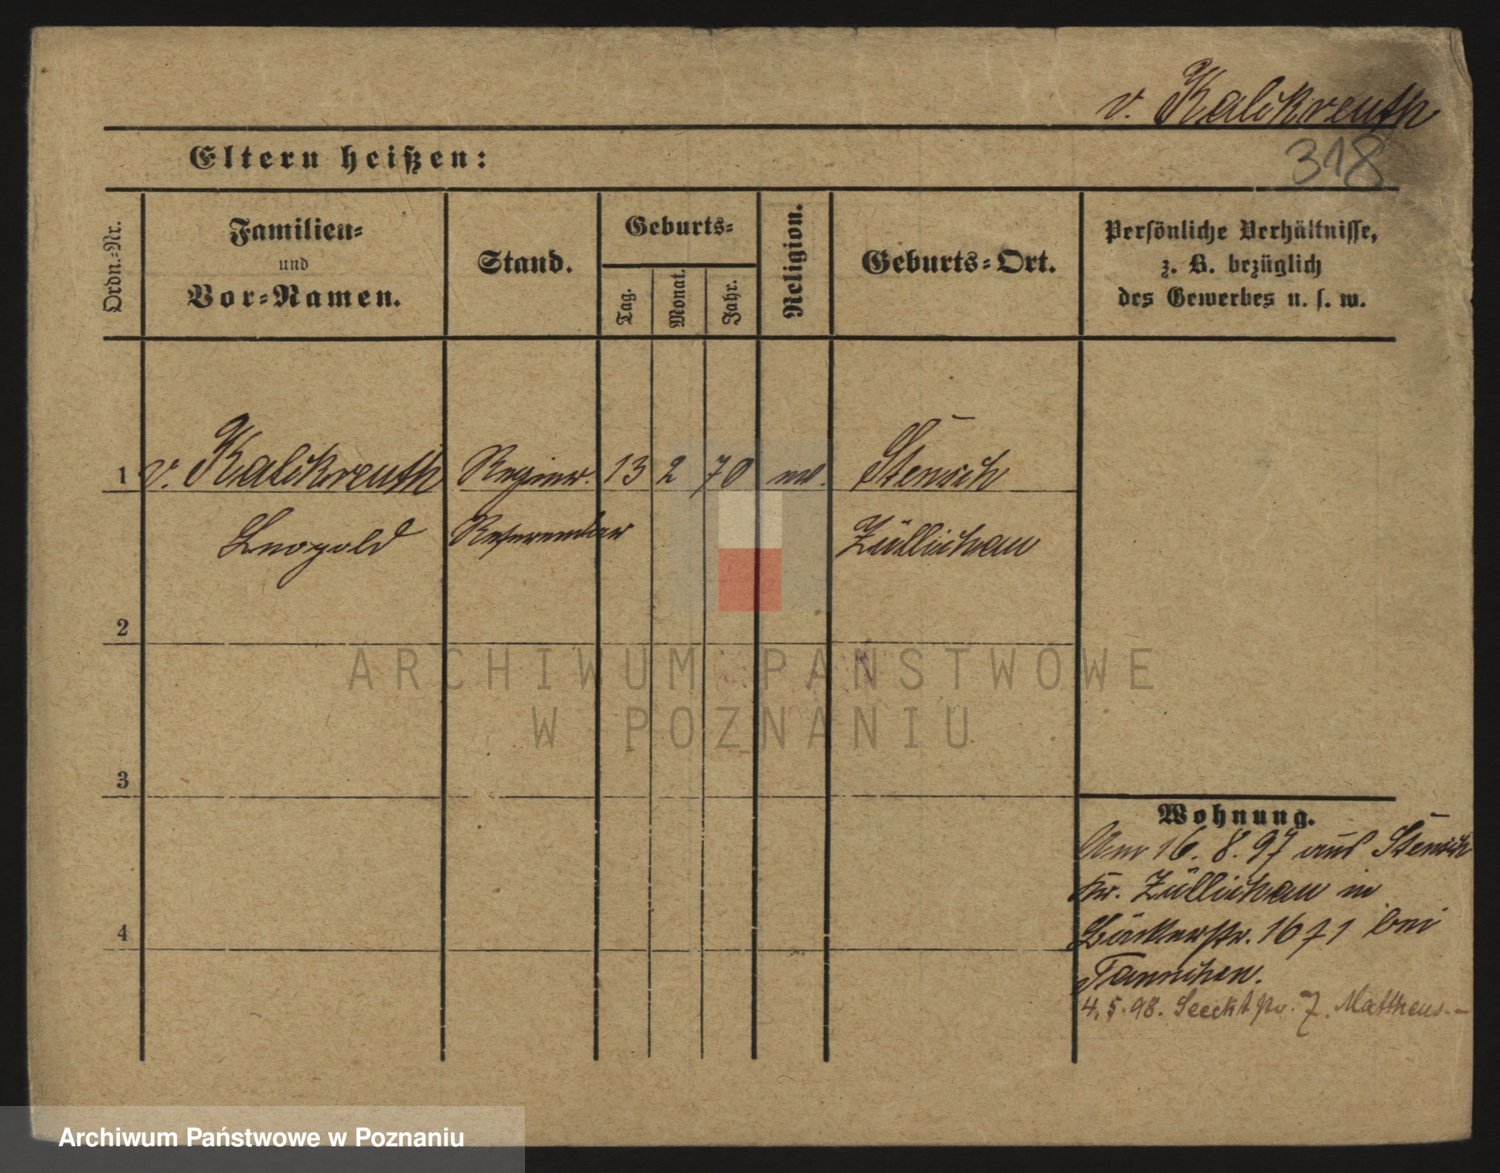 v. Kalckreuth
318
Eltern heißen:
Ordn.-Nr.
Familien-
und
Vor-Namen.
Stand.
Geburts-
Tag.
Monat.
Jahr.
Religion.
Geburts-Ort.
Persönliche Verhältnisse,
z. B. bezüglich
des Gewerbes u. s. w.
1 v. Kalckreuth Regier. 13 2 70 Stensch
Leopold Referendar Züllichau
2
3
4
Wohnung.
Am 16. 8. 97 aus Stensch
Kr. Züllichau in
Bäckerstr. 16 71 bei
4. 5. 98. Seecktstr. 7. Mattheus
ARCHIWUM PAŃSTWOWE
W POZNANIU
Archiwum Państwowe w Poznaniu